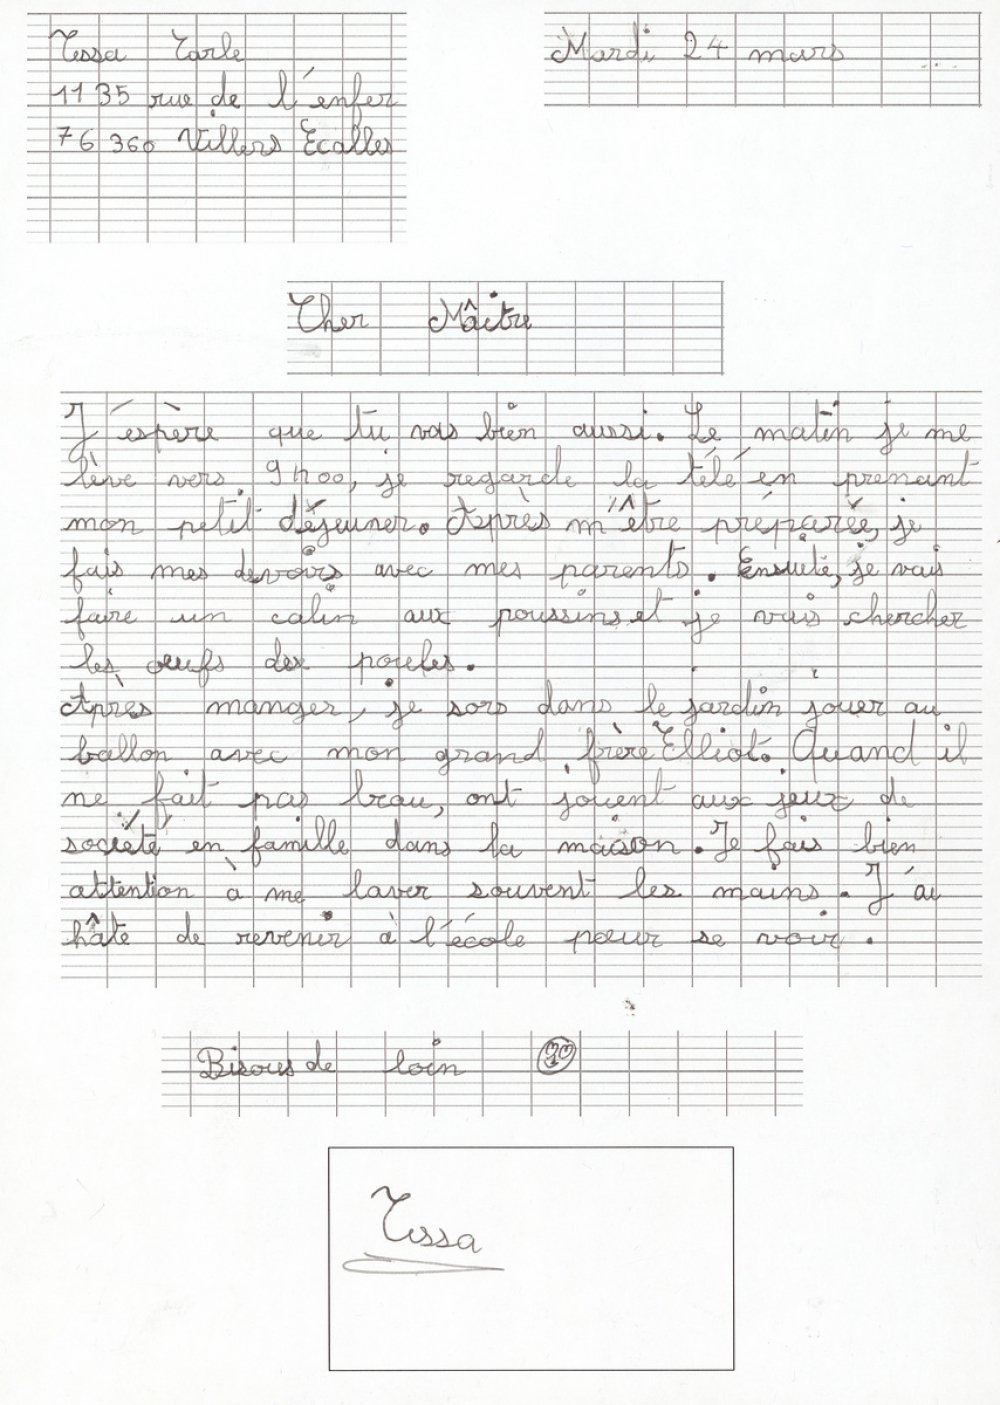 Tessa Tarle
Mardi 24 mars
1135 rue de l'enfer
76 360 Villers Ecalles
Cher Mâitre
J'éspère que tu vas bien aussi. Le matin je me
lève vers 9h00, je regarde la télé en prenant
mon petit déjeuner. Après m'être préparée, je
fais mes devoirs avec mes parents. Ensuite, je vais
faire un calin aux poussins et je vais chercher
les œufs des poules.
Après manger, je sors dans le jardin jouer au
ballon avec mon grand frère Elliot. Quand il
ne fait pas beau, ont jouent aux jeux de
société en famille dans la maison. Je fais bien
attention à me laver souvent les mains. J'ai
hâte de revenir à l'école pour se voir.
Bisous de loin
Tessa